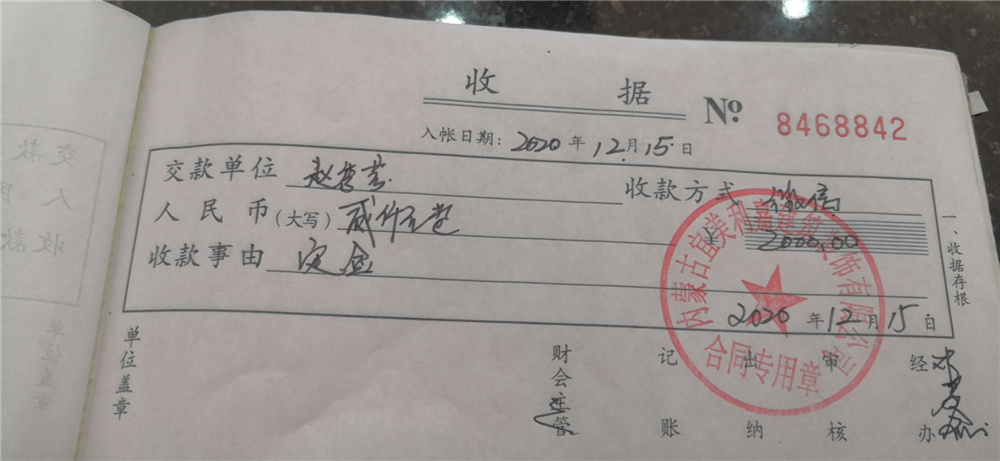 收据
No 8468842
入帐日期：2020年12月15日
交款单位 赵 收款方式 微信
人民币(大写) 贰仟元整 ¥2000.00
收款事由 定金
2020年12月15日
内蒙古宜美利嘉建筑装饰有限公司
合同专用章
一、收据存根
单位盖章
财会主管
记账
出纳
审核
经办
交款
人民
收款
单位盖章